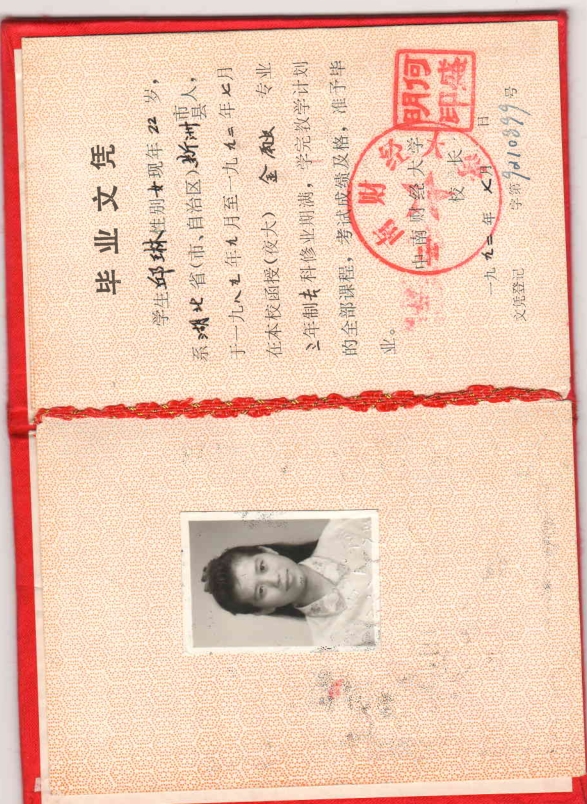 毕业文凭
学生邱琳性别女现年22岁，
系湖北省(市、自治区)新洲市县人，
于一九八九年九月至一九九二年七月
在本校函授(夜大)金融专业
三年制专科修业期满，学完教学计划
的全部课程，考试成绩及格，准予毕
业。
中南财经大学
校长
何盛明印
一九九二年七月 日
文凭登记 字第9210899号